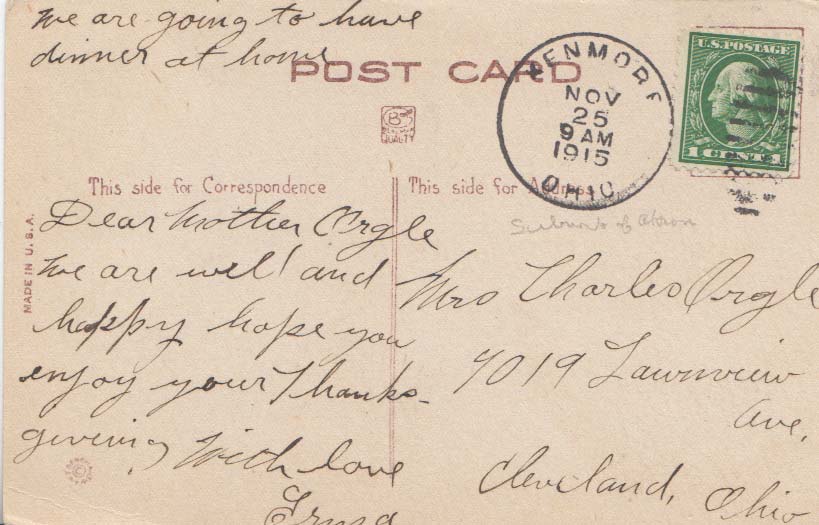 We are going to have
dinner at home
POST CARD
U.S. POSTAGE
1 CENT 1
KENMORE
NOV
25
9 AM
1915
OHIO
B S
QUALITY
This side for Correspondence
This side for Address
Suburb of Akron
MADE IN U.S.A.
Dear Mother Orgle
We are well and
happy hope you
enjoy your Thanks-
giving, With love
Irma
Mrs Charles Orgle
7019 Lawnview
Ave,
Cleveland, Ohio
©